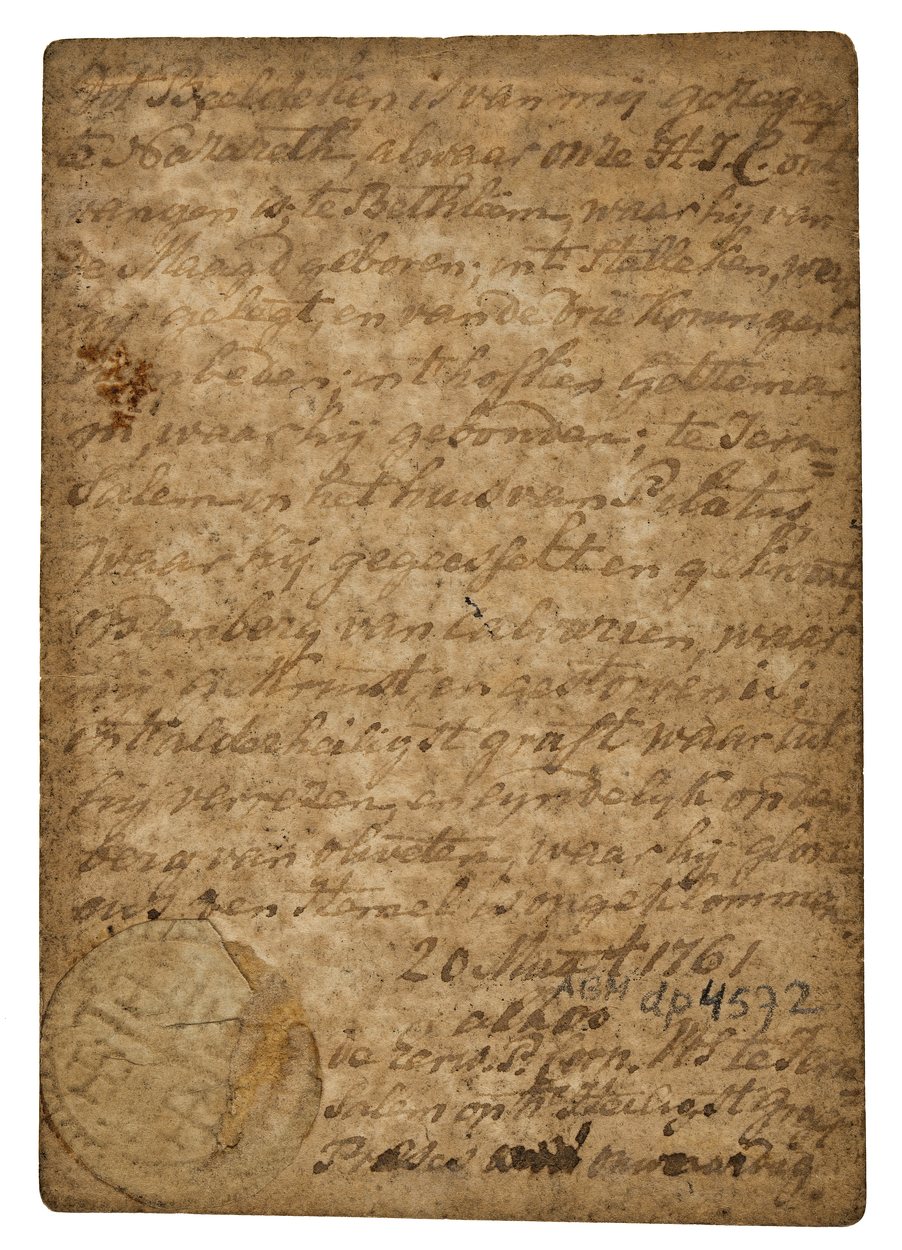 Dit Beeldeken is van mij gezegent
te Nazareth, alwaar onze H.J.C. ont-
vangen is; te Bethleem, waar hij van
de Maagd geboren; in't Stalleken, waar
hij gelegt, en van de drie Koningen
aenbeden; in't hofken Gettema
ni, waar hij gebonden; te Jeru=
salem in het huis van Pilatus,
waar hij gegeesselt en gekroont,
op den berg van Calvarien, waar
hij gekruist, en gestorven is;
in't alderheiligst graft waar uit
hij verrezen, en eyndelyk op de
berg van oliveten, waar hij glori
eus ten Hemel is opgeklommen
20 Maert 1761
AGM dp4572
de te Jeru
salem op 't Heiligst Graf
Præses onwaardig